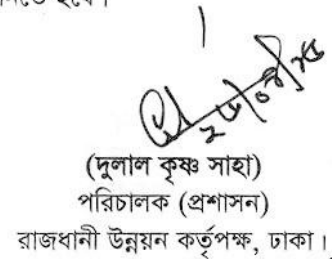 হবে।
(দুলাল কৃষ্ণ সাহা)
পরিচালক (প্রশাসন)
রাজধানী উন্নয়ন কর্তৃপক্ষ, ঢাকা।